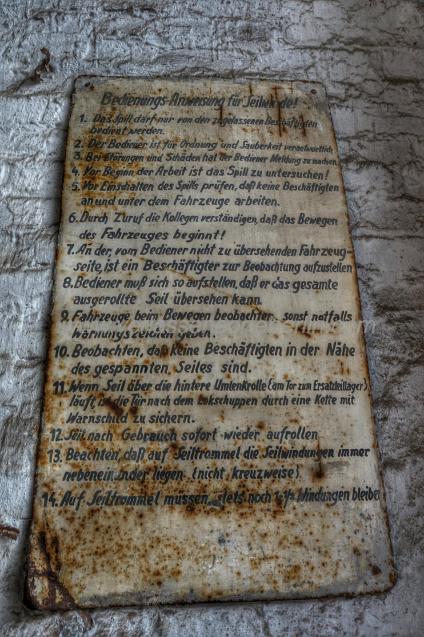 Bedienungs-Anweisung für Seilwinde!
1. Das Spill darf nur von den zugelassenen Beschäftigten
bedient werden.
2. Der Bediener ist für Ordnung und Sauberkeit verantwortlich.
3. Bei Störungen und Schäden hat der Bediener Meldung zu machen.
4. Vor Beginn der Arbeit ist das Spill zu untersuchen!
5. Vor Einschalten des Spills prüfen, daß keine Beschäftigten
an und unter dem Fahrzeuge arbeiten.
6. Durch Zuruf die Kollegen verständigen, daß das Bewegen
des Fahrzeuges beginnt!
7. An der, vom Bediener nicht zu übersehenden Fahrzeug-
seite, ist ein Beschäftigter zur Beobachtung aufzustellen
8. Bediener muß sich so aufstellen, daß er das gesamte
ausgerollte Seil übersehen kann.
9. Fahrzeuge beim Bewegen beobachten, sonst notfalls
Warnungszeichen geben.
10. Beobachten, daß keine Beschäftigten in der Nähe
des gespannten Seiles sind.
11. Wenn Seil über die hintere Umlenkrolle (am Tor zum Ersatzteillager)
läuft, ist die Tür nach dem Lokschuppen durch eine Kette mit
Warnschild zu sichern.
12. Seil nach Gebrauch sofort wieder aufrollen
13. Beachten, daß auf Seiltrommel die Seilwindungen immer
nebeneinander liegen (nicht kreuzweise).
14. Auf Seiltrommel müssen stets noch 1½ Windungen bleiben